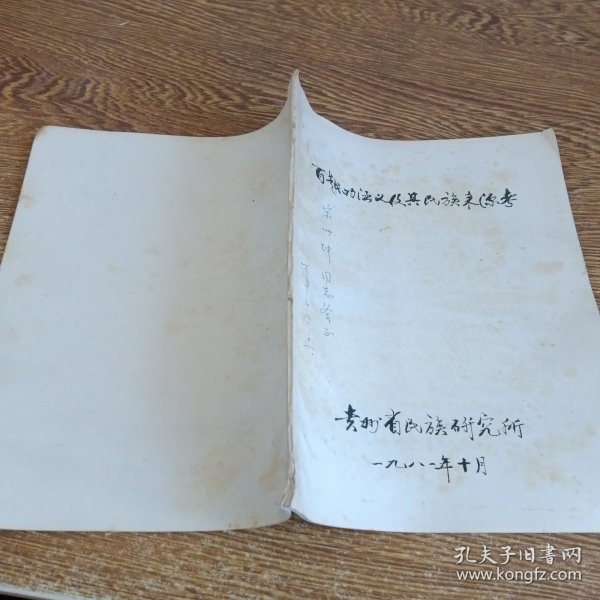 百越的涵义及其民族来源考
同志
贵州省民族研究所
一九八一年十月
孔夫子旧书网
www.kongfz.com